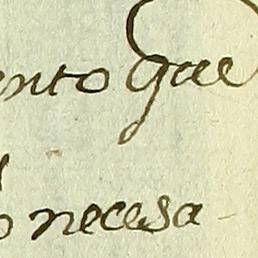 ento que
o necesa